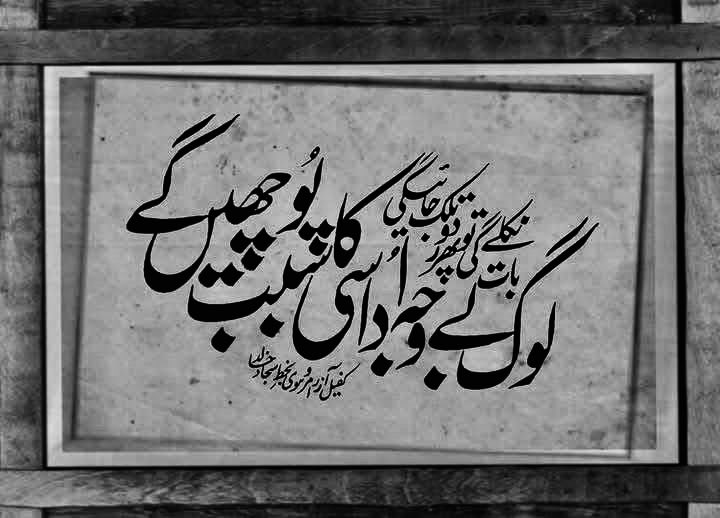 بات نکلے گی تو پھر دور تلک جائے گی
لوگ بے وجہ اُداسی کا سبب پُوچھیں گے
کفیل آزر امروہوی بخط سجاد خالد